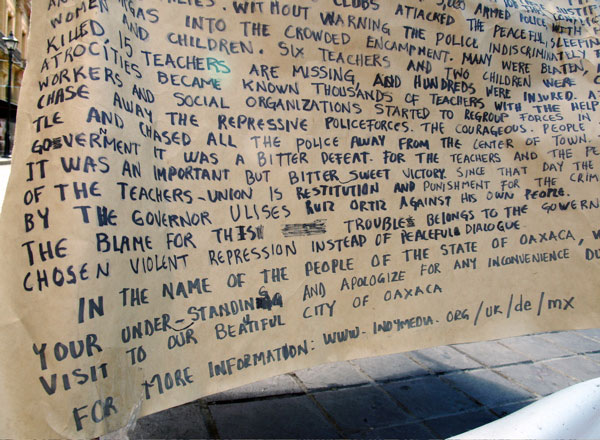 CLUBS ATTACKED THE PEACEFUL, SLEEPING
GAS INTO THE CROWDED ENCAMPMENT. WITHOUT WARNING THE POLICE INDISCRIMINATELY
WOMEN AND CHILDREN. SIX TEACHERS AND TWO CHILDREN WERE MANY WERE BEATEN,
KILLED 15 TEACHERS ARE MISSING, AND HUNDREDS WERE INJURED. A
ATROCITIES BECAME KNOWN THOUSANDS OF TEACHERS WITH THE HELP
WORKERS AND SOCIAL ORGANIZATIONS STARTED TO REGROUP FORCES IN
CHASE AWAY THE REPRESSIVE POLICEFORCES. THE COURAGEOUS PEOPLE
TLE AND CHASED ALL THE POLICE AWAY FROM THE CENTER OF TOWN.
GOVERNMENT IT WAS A BITTER DEFEAT. FOR THE TEACHERS AND THE PE
IT WAS AN IMPORTANT BUT BITTER SWEET VICTORY. SINCE THAT DAY THE
OF THE TEACHERS-UNION IS RESTITUTION AND PUNISHMENT FOR THE CRIM
BY THE GOVERNOR ULISES RUIZ ORTIZ AGAINST HIS OWN PEOPLE.
THE BLAME FOR THIS TROUBLE BELONGS TO THE GOVERN
CHOSEN VIOLENT REPRESSION INSTEAD OF PEACEFUL DIALOGUE.
IN THE NAME OF THE PEOPLE OF THE STATE OF OAXACA, W
YOUR UNDER-STANDING AND APOLOGIZE FOR ANY INCONVENIENCE DU
VISIT TO OUR BEATIFUL CITY OF OAXACA
FOR MORE INFORMATION: WWW.INDYMEDIA.ORG/UK/de/mx